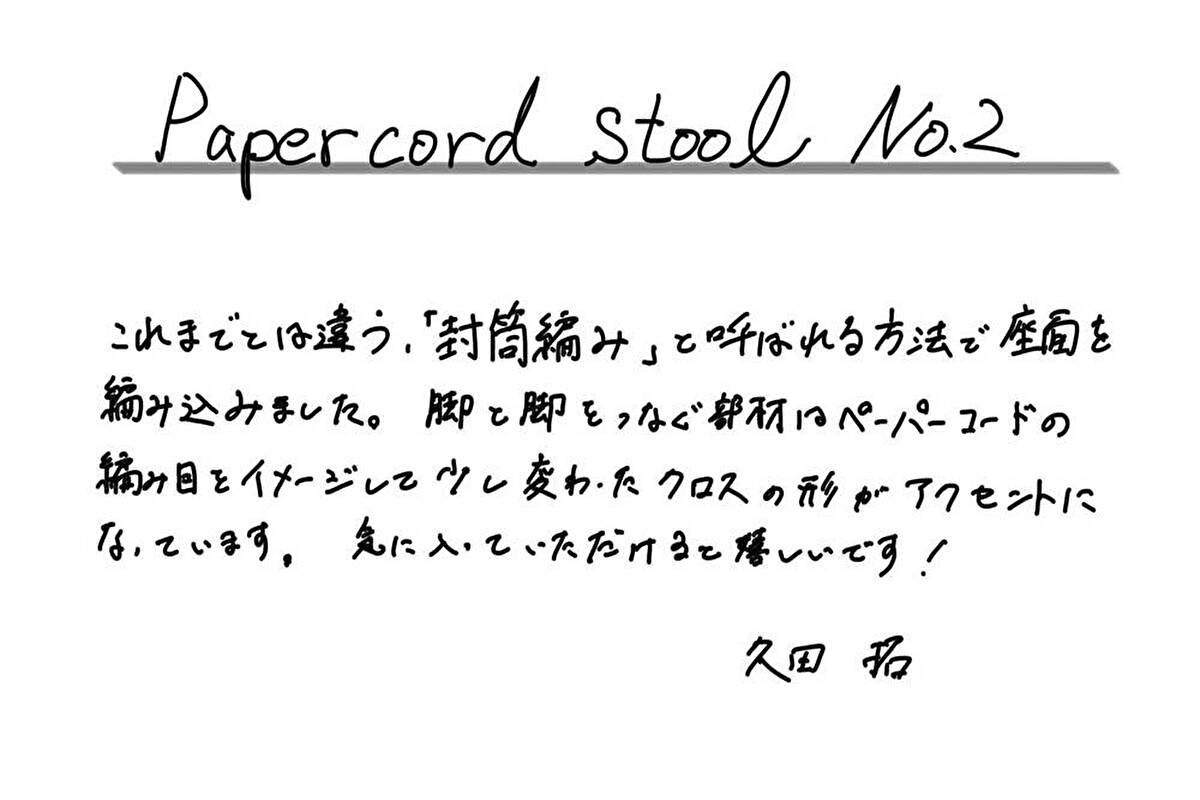 Papercord stool No.2
これまでとは違う、「封筒編み」と呼ばれる方法で座面を
編み込みました。 脚と脚をつなぐ部材はペーパーコードの
編み目をイメージして少し変わったクロスの形がアクセントに
なっています。 気に入っていただけると嬉しいです！
久田 拓